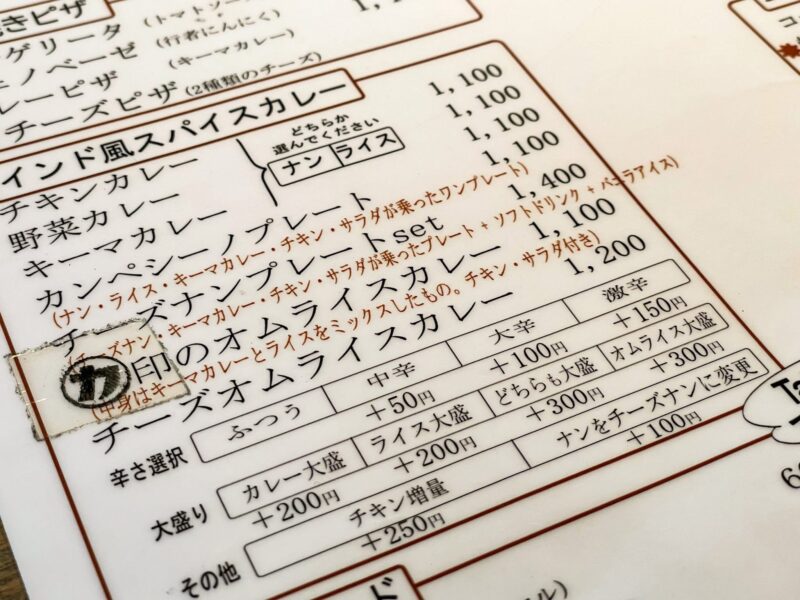 きピザ
ゲリータ (トマトソー
1,1
ノベーゼ (行者にんにく)
レーピザ (キーマカレー)
チーズピザ (2種類のチーズ)
インド風スパイスカレー
チキンカレー 1,100
野菜カレー 1,100
キーマカレー 1,100
どちらか
選んでください
ナン ライス
カンペシーノプレート 1,100
(ナン・ライス・キーマカレー・チキン・サラダが乗ったワンプレート)
チーズナンプレートset 1,400
(チーズナン・キーマカレー・チキン・サラダが乗ったプレート + ソフトドリンク + バニラアイス)
カ印のオムライスカレー 1,100
(中身はキーマカレーとライスをミックスしたもの。チキン・サラダ付き)
チーズオムライスカレー 1,200
辛さ選択 ふつう 中辛 +50円 大辛 +100円 激辛 +150円
大盛り カレー大盛 +200円 ライス大盛 +200円 どちらも大盛 +300円 オムライス大盛 +300円
その他 チキン増量 +250円 ナンをチーズナンに変更 +100円
コ
Ta
ド
ル)